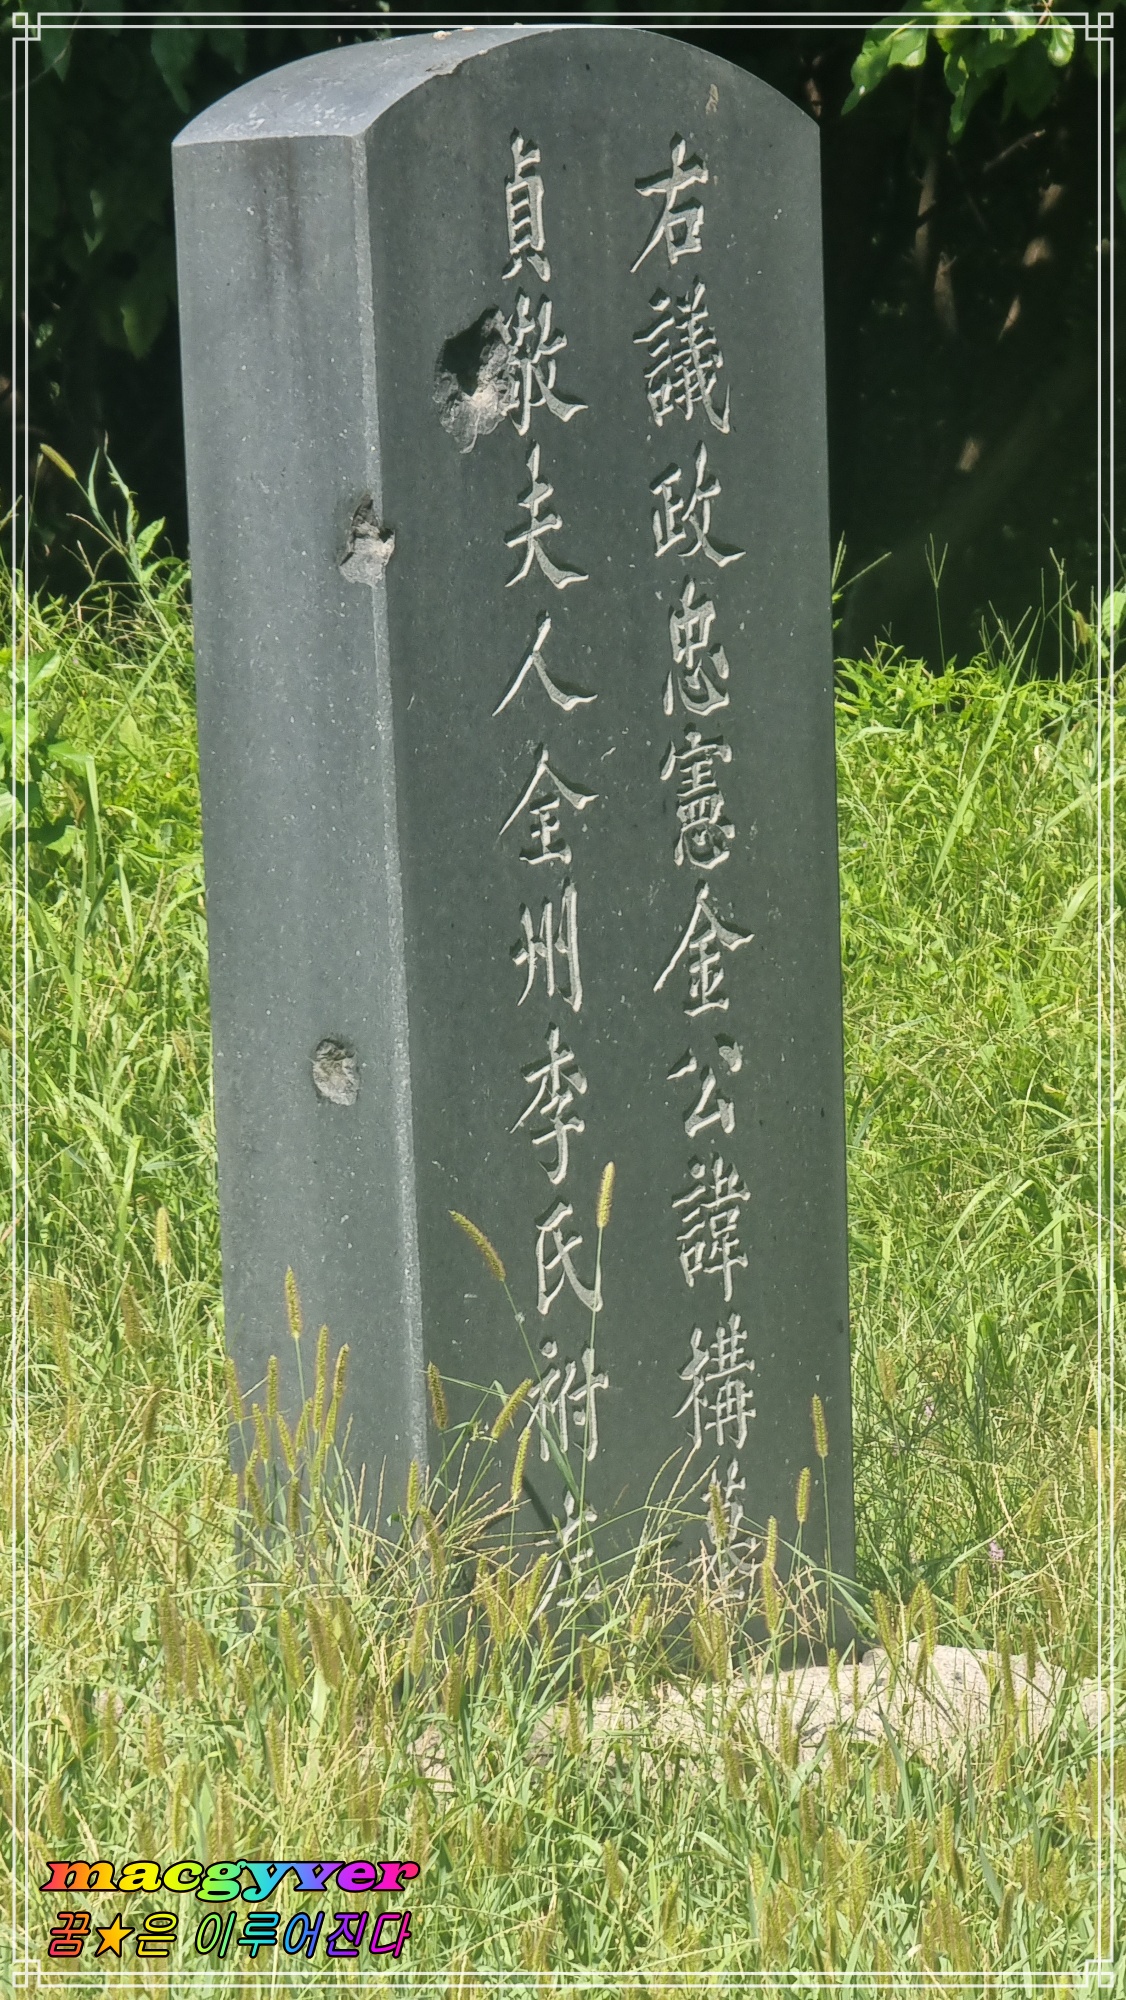 右議政忠憲金公諱構墓
貞敬夫人全州李氏祔左
macgyver
꿈★은 이루어진다